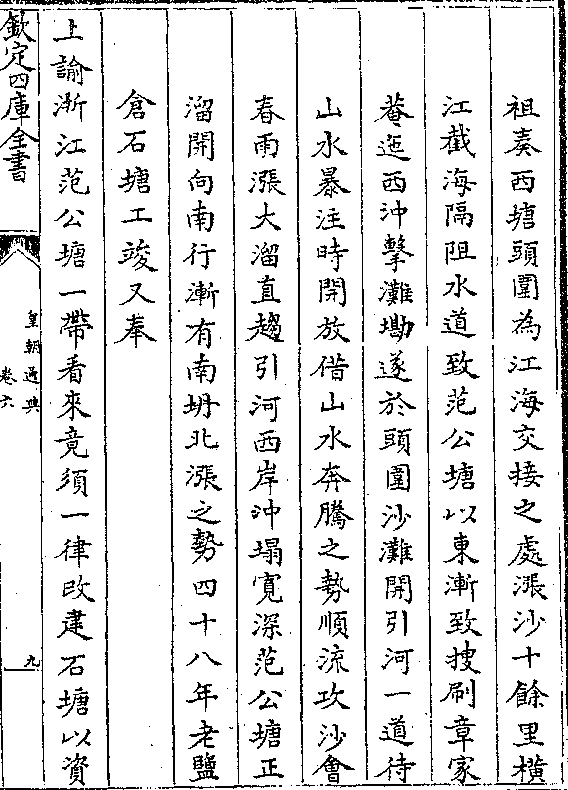 祖奏西塘頭圍為江海交接之處漲沙十餘里橫
江截海隔阻水道致范公塘以東漸致搜刷章家
菴迤西沖擊灘墈遂於頭圍沙灘開引河一道待
山水暴注時開放借山水奔騰之勢順流攻沙會
春雨漲大溜直趨引河西岸沖塌寛深范公塘正
溜開向南行漸有南坍北漲之勢四十八年老鹽
倉石塘工竣又奉
上諭浙江范公塘一帶看來竟須一律改建石塘以資
欽定四庫全書
皇朝通典
卷六
九